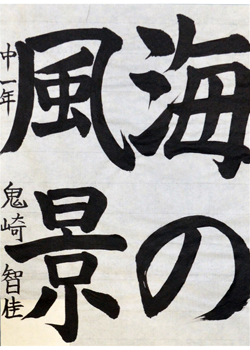 海の
風景
中一年 鬼崎智佳